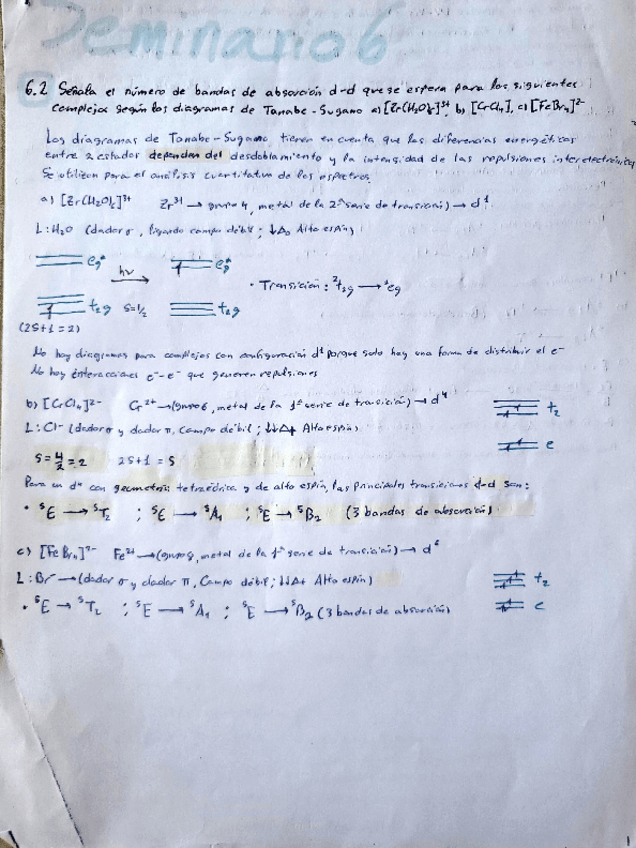 Seminario 6
6.2 Señala el número de bandas de absorción d-d que se espera para los siguientes
complejos según los diagramas de Tanabe-Sugano a) [Zr(H₂O)₆]³⁺, b) [CrCl₄], c) [FeBr₄]²⁻
Los diagramas de Tanabe-Sugano tienen en cuenta que las diferencias energéticas
entre 2 estados dependen del desdoblamiento y la intensidad de las repulsiones interelectrónicas
Se utilizan para el análisis cuantitativo de los espectros
a) [Zr(H₂O)₆]³⁺ Zr³⁺ → grupo 4, metal de la 2ª serie de transición) → d¹
L: H₂O (dador σ, ligando campo débil; ↓Δ₀ Alto espín)
eg* hν eg*
• Transición: ²t₂g → ²eg
t₂g S=1/2 t₂g
(2S+1=2)
No hay diagramas para complejos con configuración d¹ porque solo hay una forma de distribuir el e⁻
No hay interacciones e⁻-e⁻ que generen repulsiones
b) [CrCl₄]²⁻ Cr²⁺ → (grupo 6, metal de la 1ª serie de transición) → d⁴
t₂
L: Cl⁻ (dador σ y dador π, Campo débil; ↓↓Δt Alto espín)
e
S=4/2=2 2S+1=5
Para un d⁴ con geometría tetraédrica y de alto espín, las principales transiciones d-d son:
• ⁵E → ⁵T₂ ; ⁵E → ⁵A₁ ; ⁵E → ⁵B₂ (3 bandas de absorción)
c) [FeBr₄]²⁻ Fe²⁺ → (grupo 8, metal de la 1ª serie de transición) → d⁶
L: Br⁻ → (dador σ y dador π, Campo débil; ↓↓Δt Alto espín)
t₂
• ⁵E → ⁵T₂ ; ⁵E → ⁵A₁ ; ⁵E → ⁵B₂ (3 bandas de absorción)
e